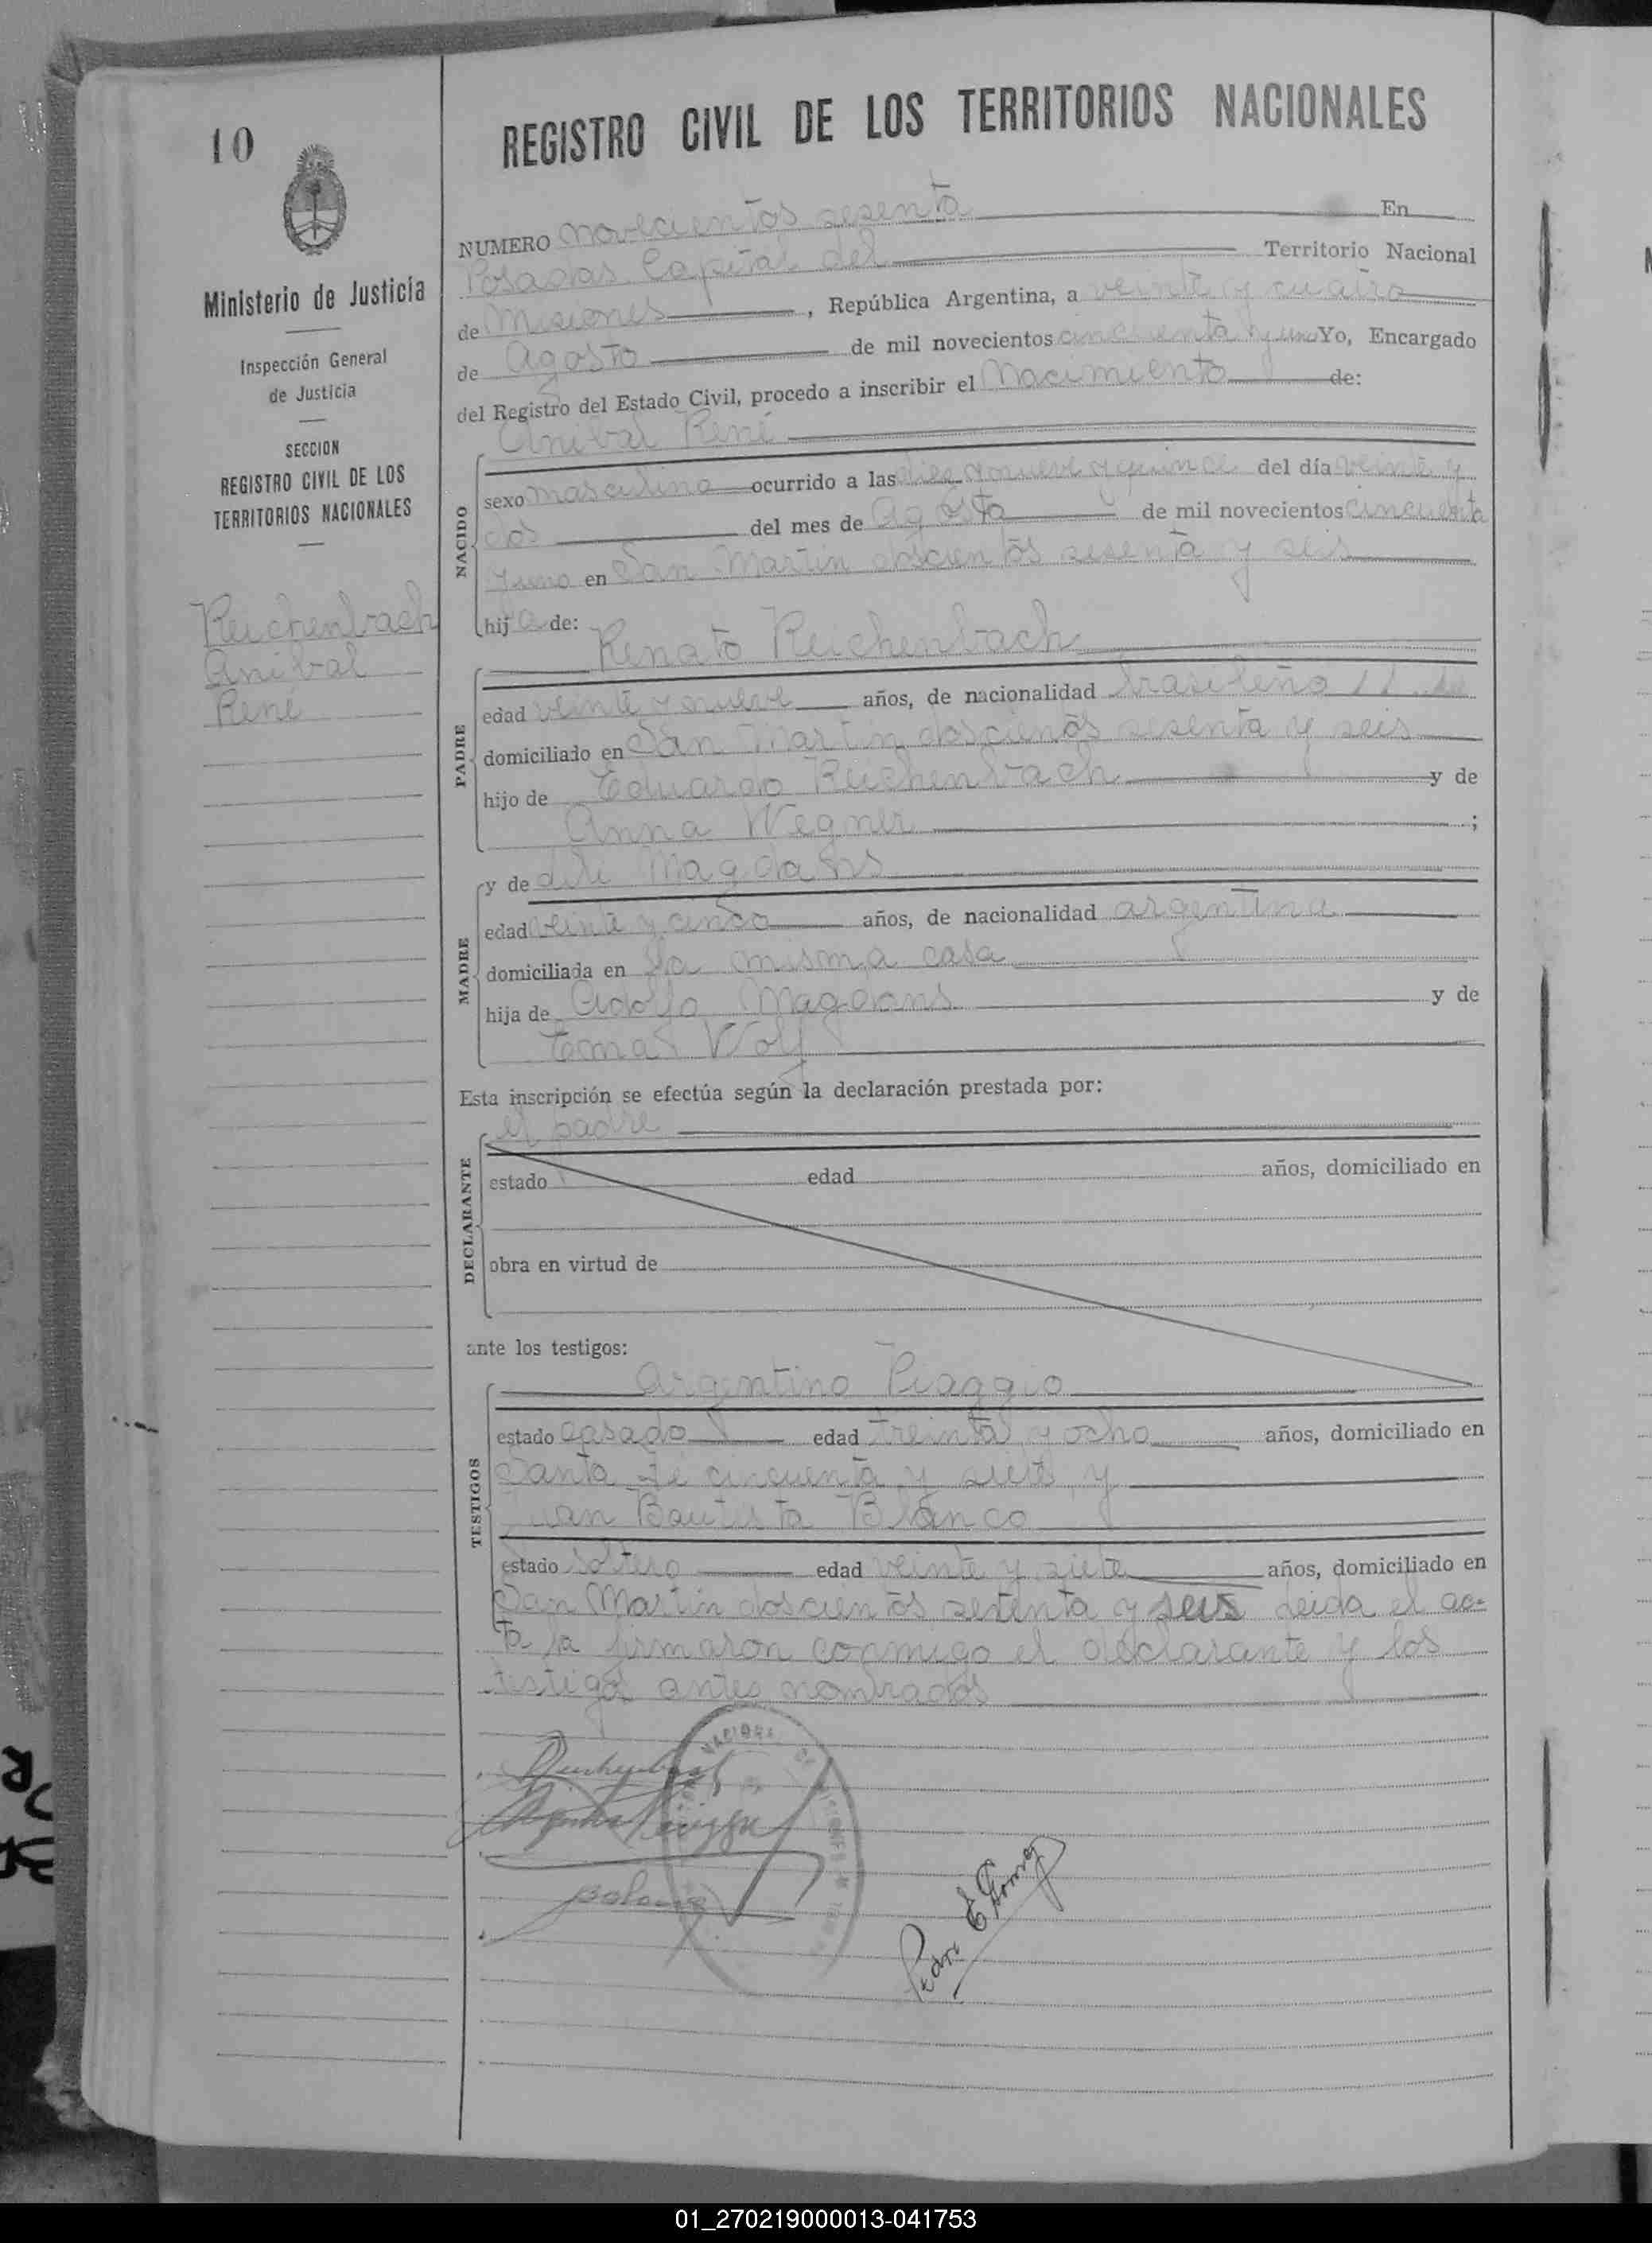 REGISTRO CIVIL DE LOS TERRITORIOS NACIONALES
10
Ministerio de Justicia
Inspección General
de Justicia
SECCION
REGISTRO CIVIL DE LOS
TERRITORIOS NACIONALES
Reichenbach
Anibal
René
NUMERO novecientos sesenta En
Posadas Capital del Territorio Nacional
de Misiones, República Argentina, a veinte y cuatro
de Agosto de mil novecientos cincuenta y uno Yo, Encargado
del Registro del Estado Civil, procedo a inscribir el Nacimiento de:
Anibal René
NACIDO
sexo masculino ocurrido a las diez y nueve y quince del día veinte y
dos del mes de Agosto de mil novecientos cincuenta
y uno en San Martin doscientos sesenta y seis
hijo de:
Renato Reichenbach
PADRE
edad veinte y nueve años, de nacionalidad brasileño
domiciliado en San Martin doscientos sesenta y seis
hijo de Eduardo Reichenbach y de
Anna Wegner ;
y de Magdans
MADRE
edad veinte y cinco años, de nacionalidad argentina
domiciliada en la misma casa
hija de Adolfo Magdans y de
Wolf
Esta inscripción se efectúa según la declaración prestada por:
el padre
DECLARANTE
estado edad años, domiciliado en
obra en virtud de
ante los testigos:
Argentino Piaggio
TESTIGOS
estado casado edad treinta y ocho años, domiciliado en
Santa Fé cincuenta y siete y
Juan Bautista Blanco
estado soltero edad veinte y siete años, domiciliado en
San Martin doscientos setenta y seis leida el ac-
ta la firmaron conmigo el declarante y los
testigos antes nombrados
Pedro E Gomez
01_270219000013-041753